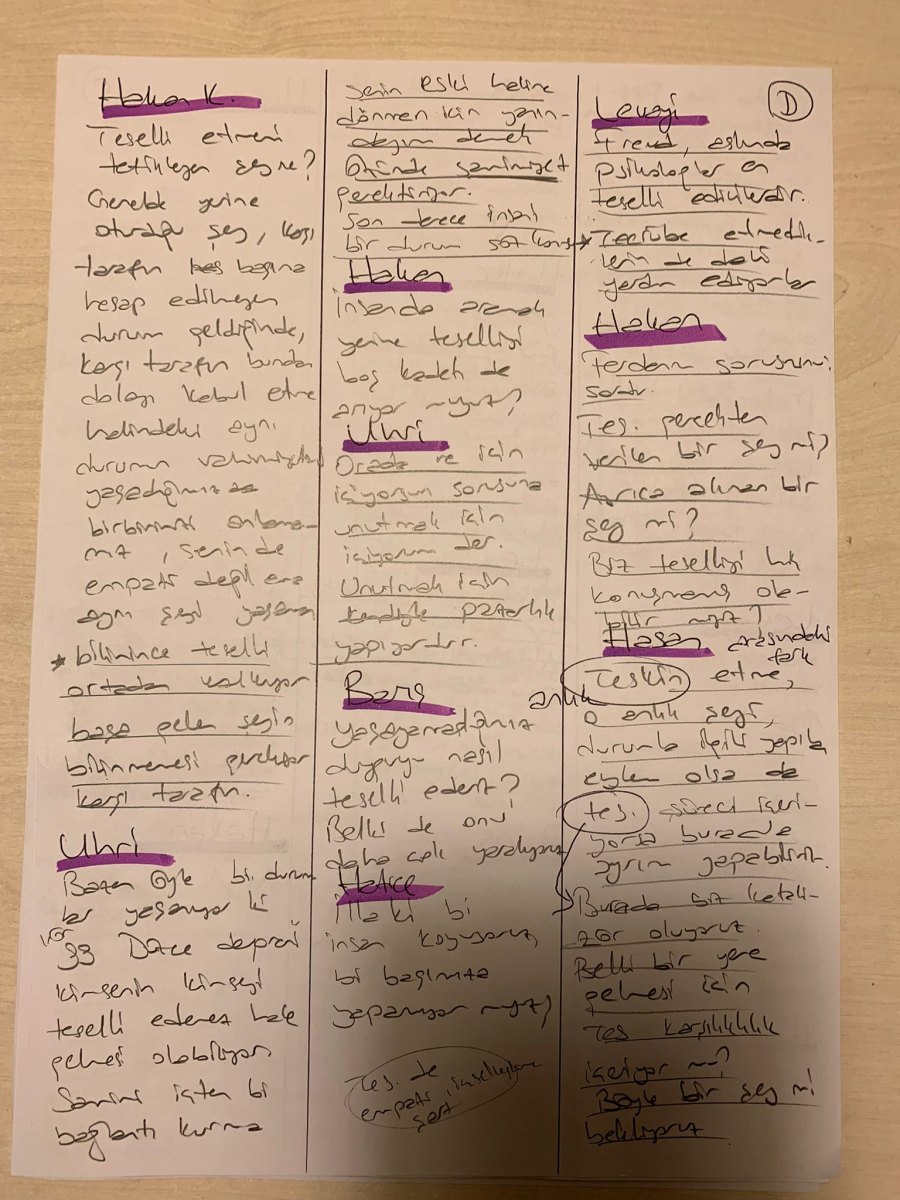 Hakan K.
Teselli etmeni
tetikleyen şey ne?
Genelde yerine
oturduğu şey, karşı
tarafın başına
hesap edilmeyen
durum geldiğinde,
karşı tarafın bundan
dolayı kabul etme
halindeki aynı
durumun
yaşadığımızda
birbirimizi anlama-
mız, senin de
empati değil ama
aynı şeyi yaşaman
* bilinince teselli
ortadan kalkıyor
başa gelen şeyin
bilinmemesi gerekiyor
karşı tarafın.
Uhri
Bazen öyle bi durum
lar yaşanıyor ki
99 Düzce depremi
kimsenin kimseyi
teselli edemez hale
gelmesi olabiliyor
Samimi içten bi
bağlantı kurma
senin eski haline
dönmen için yanın-
dayım demek
Özünde samimiyet
gerektiriyor.
Son derece insani
bir durum söz konusu
Hakan
İnsanda aramak
yerine teselliyi
boş kadeh de
arıyor muyuz?
Uhri
Orada ne için
içiyorsun sorusuna
unutmak için
içiyorum der.
Unutmak için
kendiyle pazarlık
yapıyordur.
Barış
yaşayamadığımız
duyguyu nasıl
teselli ederiz?
Belki de onu
daha çok yaralıyoruz
Hatice
İlla ki bi
insan koyuyoruz,
bi başımıza
yapamıyor muyuz?
Tes. de
empati, içselleştirme
şart
D
trend, aslında
psikologlar en
teselli edicilerdir.
* Tecrübe etmedik-
lerin de dahi
yardım ediyorlar
Hakan
sorusunu
sordu.
Tes. gerçekten
verilen bir şey mi?
Ayrıca alınan bir
şey mi?
Biz teselliyi hk
konuşmamış ola-
bilir miyiz?
Hasan arasındaki
fark
Teskin etme,
anlık
o anlık şeyi,
durumla ilgili yapılan
eylem olsa da
tes. süreci içeri-
yorsa burada
ayrım yapabiliriz.
Burada biz katali-
zör oluyoruz.
Belli bir yere
gelmesi için
Tes karşılıklılık
içeriyor mu?
Böyle bir şey mi
bekliyoruz